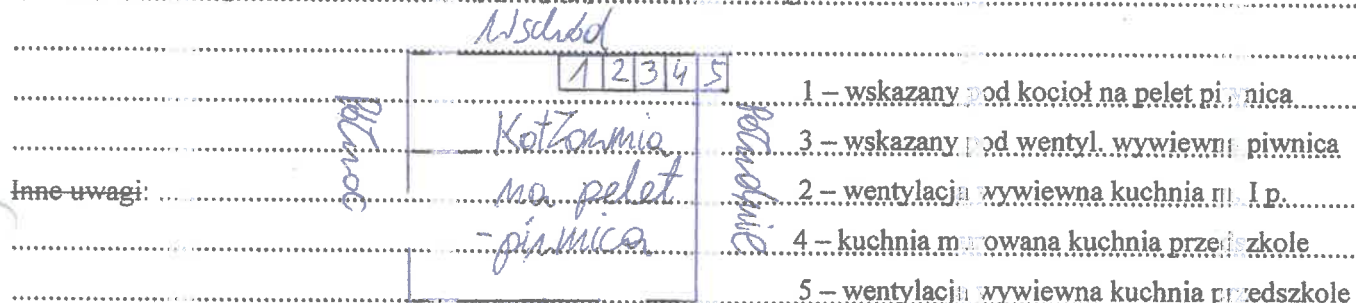 Wschód
1 2 3 4 5
Północ
Południe
Kotłownia
na pelet
- piwnica
1 – wskazany pod kocioł na pelet piwnica
3 – wskazany pod wentyl. wywiewną piwnica
Inne uwagi:
2 – wentylacja wywiewna kuchnia na I p.
4 – kuchnia murowana kuchnia przedszkole
5 – wentylacja wywiewna kuchnia przedszkole